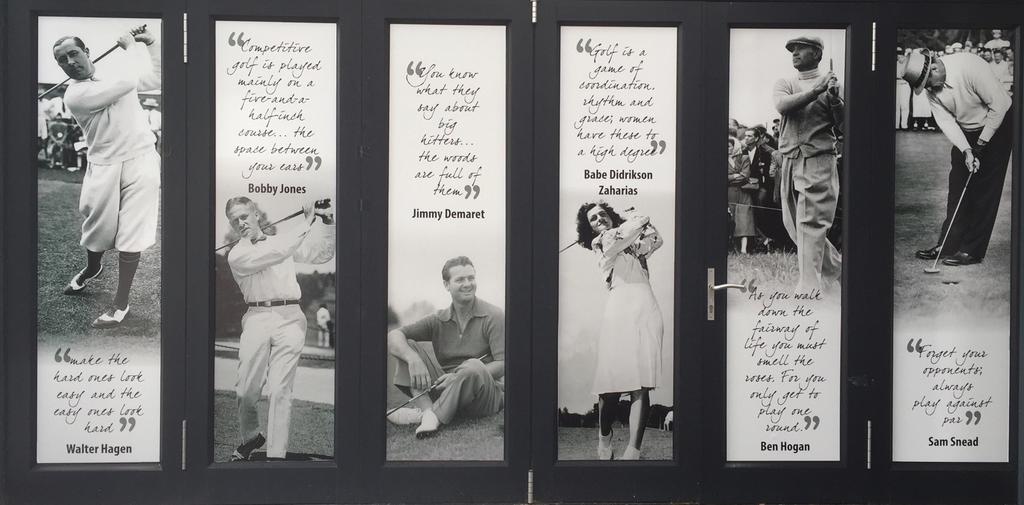 “make the
hard ones look
easy and the
easy ones look
hard”
Walter Hagen
“Competitive
golf is played
mainly on a
five-and-a-
half-inch
course... the
space between
your ears”
Bobby Jones
“You know
what they
say about
big
hitters...
the woods
are full of
them”
Jimmy Demaret
“Golf is a
game of
coordination,
rhythm and
grace; women
have these to
a high degree”
Babe Didrikson
Zaharias
“As you walk
down the
fairway of
life you must
smell the
roses. For you
only get to
play one
round.”
Ben Hogan
“Forget your
opponents;
always
play against
par”
Sam Snead